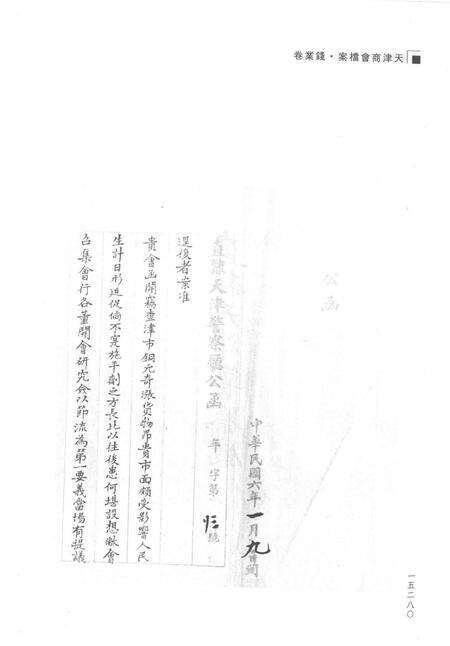 天津商會檔案·錢業卷
公函
中華民國六年一月九日到
直隸天津警察廳公函 年 字第 號
逕復者案准
貴會函開竊查津市銅元奇漲貨物昂貴市面頗受影響人民
生計日形迫促倘不寬施平劑之方長此以往後患何堪設想敝會
召集會行各董開會研究僉以節流為第一要義當場有提議
一五二八〇